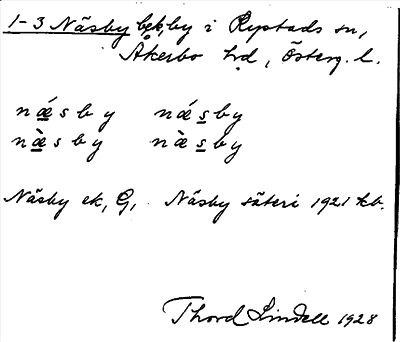 1-3 Näsby by i Rystads sn,
Åkerbo hd, Österg. l.
næ´sby næ´sby
næ`sby næ`sby
Näsby ek, G, Näsby säteri 1921 kb.
Thord Lindell 1928